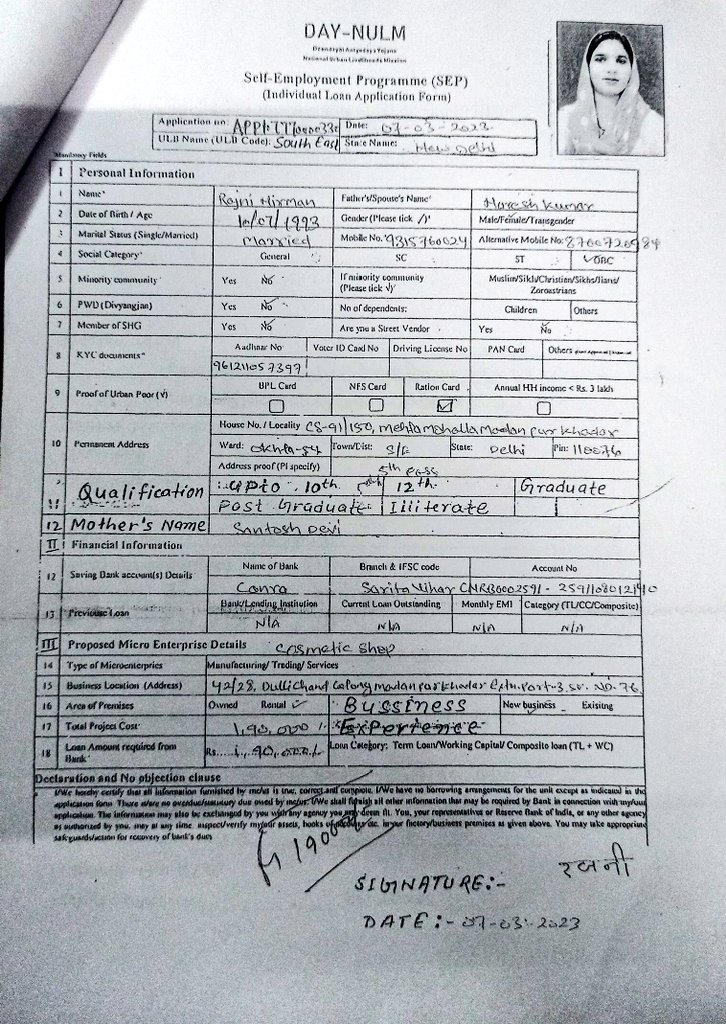 DAY-NULM
Deendayal Antyodaya Yojana
National Urban Livelihoods Mission
Self-Employment Programme (SEP)
(Individual Loan Application Form)
Application no: Date: 07-03-2023
ULB Name (ULB Code): South East State Name: New Delhi
Mandatory Fields
I Personal Information
1 Name* Rajni Nirman Father's/Spouse's Name* Haresh Kumar
2 Date of Birth / Age 10/07/1993 Gender (Please tick √)* Male/Female/Transgender
3 Marital Status (Single/Married) Married Mobile No.* 9315760024 Alternative Mobile No: 8700720984
4 Social Category* General SC ST OBC
5 Minority community Yes No If minority community (Please tick √) Muslim/Sikh/Christien/Sikhs/Jians/ Zoroastrians
6 PWD (Divyangjan) Yes No No of dependents: Children Others
7 Member of SHG Yes No Are you a Street Vendor Yes No
8 KYC documents* Aadhar No Voter ID Card No Driving License No PAN Card Others
961211057397
9 Proof of Urban Poor (√) BPL Card NFS Card Ration Card Annual HH income < Rs. 3 lakh
10 Permanent Address House No. / Locality CS-91/150, Mehla Mohalla Madan pur Khadar
Ward: Okhla-94 Town/Dist: S/E State: Delhi Pin: 110076
Address proof (Pl specify)
5th Pass
11 Qualification Upto 10th 12th Graduate
Post Graduate Illiterate
12 Mother's Name Santosh Devi
II Financial Information
12 Saving Bank account(s) Details Name of Bank Branch & IFSC code Account No
Canra Sarita Vihar CNRB0002591 -
13 Previouse Loan Bank/Lending Institution Current Loan Outstanding Monthly EMI Category (TL/CC/Composite)
N/A N/A N/A N/A
III Proposed Micro Enterprise Details Cosmetic Shop
14 Type of Microenterpries Manufacturing/ Trading/ Services
15 Business Location (Address) 42/28, Dulli Chand Colony madan pur khadar Extn. Part-3 NO. 76
16 Area of Premises Owned Rental ✓ Bussiness New business Exisitng
17 Total Project Cost* 1,90,000/- Experience
18 Loan Amount required from Bank* Rs. 1,90,000/- Loan Category: Term Loan/Working Capital/ Composite loan (TL + WC)
Declaration and No objection clause
I/We hereby certify that all information furnished by me/us is true, correct and complete. I/We have no borrowing arrangements for the unit except as indicated in the
application form. There is/are no overdue/statutory due owed by me/us. I/We shall furnish all other information that may be required by Bank in connection with my/our
application. The information may also be exchanged by you with any agency you may deem fit. You, your representatives or Reserve Bank of India, or any other agency
as authorized by you, may at any time, inspect/verify my/our assets, books of accounts etc. in our factory/business premises as given above. You may take appropriate
safeguards/action for recovery of bank's dues
190000/
SIGNATURE:- रजनी
DATE:- 07-03-2023